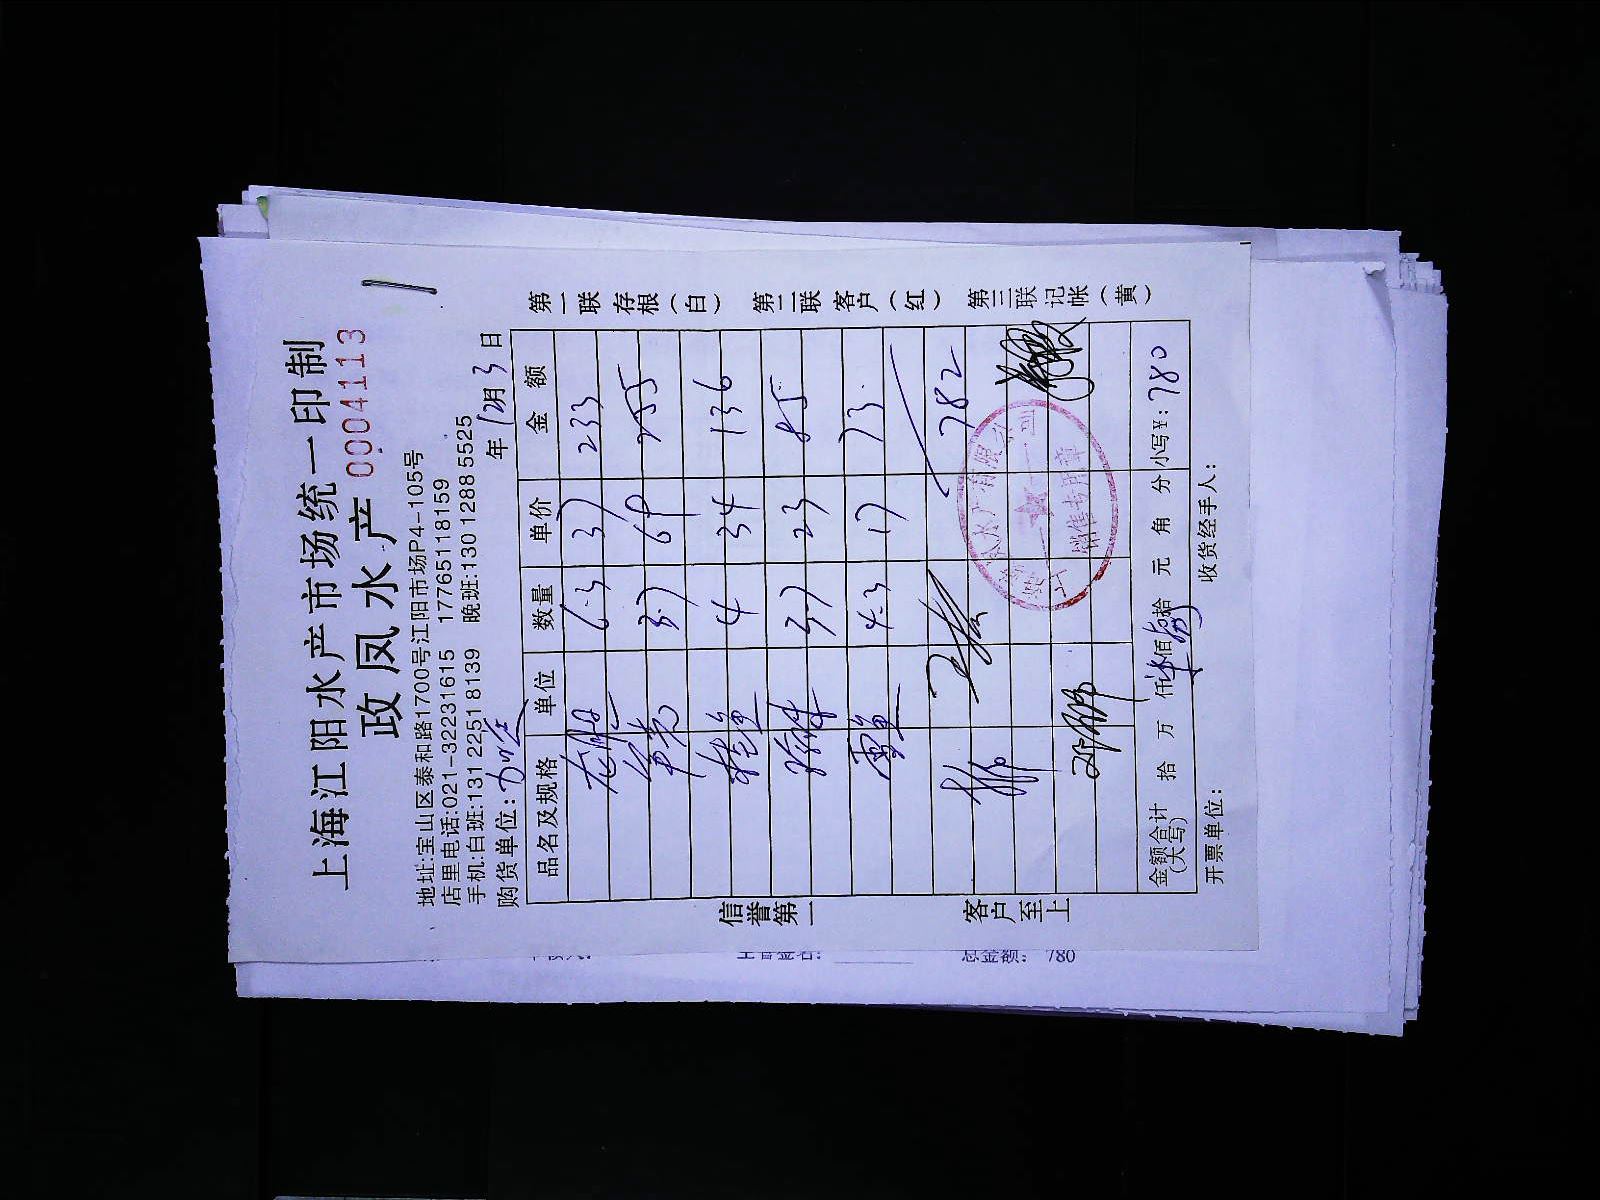 上海江阳水产市场统一印制
政凤水产 0004113
地址:宝山区泰和路1700号江阳市场P4-105号
店里电话:021-32231615 17765118159
手机:白班:131 2251 8139 晚班:130 1288 5525
购货单位: 年 12月3日
品名及规格 单位 数量 单价 金额
6.3 37 233
3.7 69 255
桂鱼 4 34 136
3.7 23 85
鱼 4.3 17 73
782
金额合计(大写) 拾 万 仟 佰 拾 元 角 分 小写¥: 780
开票单位: 收货经手人:
第一联存根(白) 第二联客户(红) 第三联记帐(黄)
信誉第一 客户至上
水产有限公
销售专用章
总金额: 780